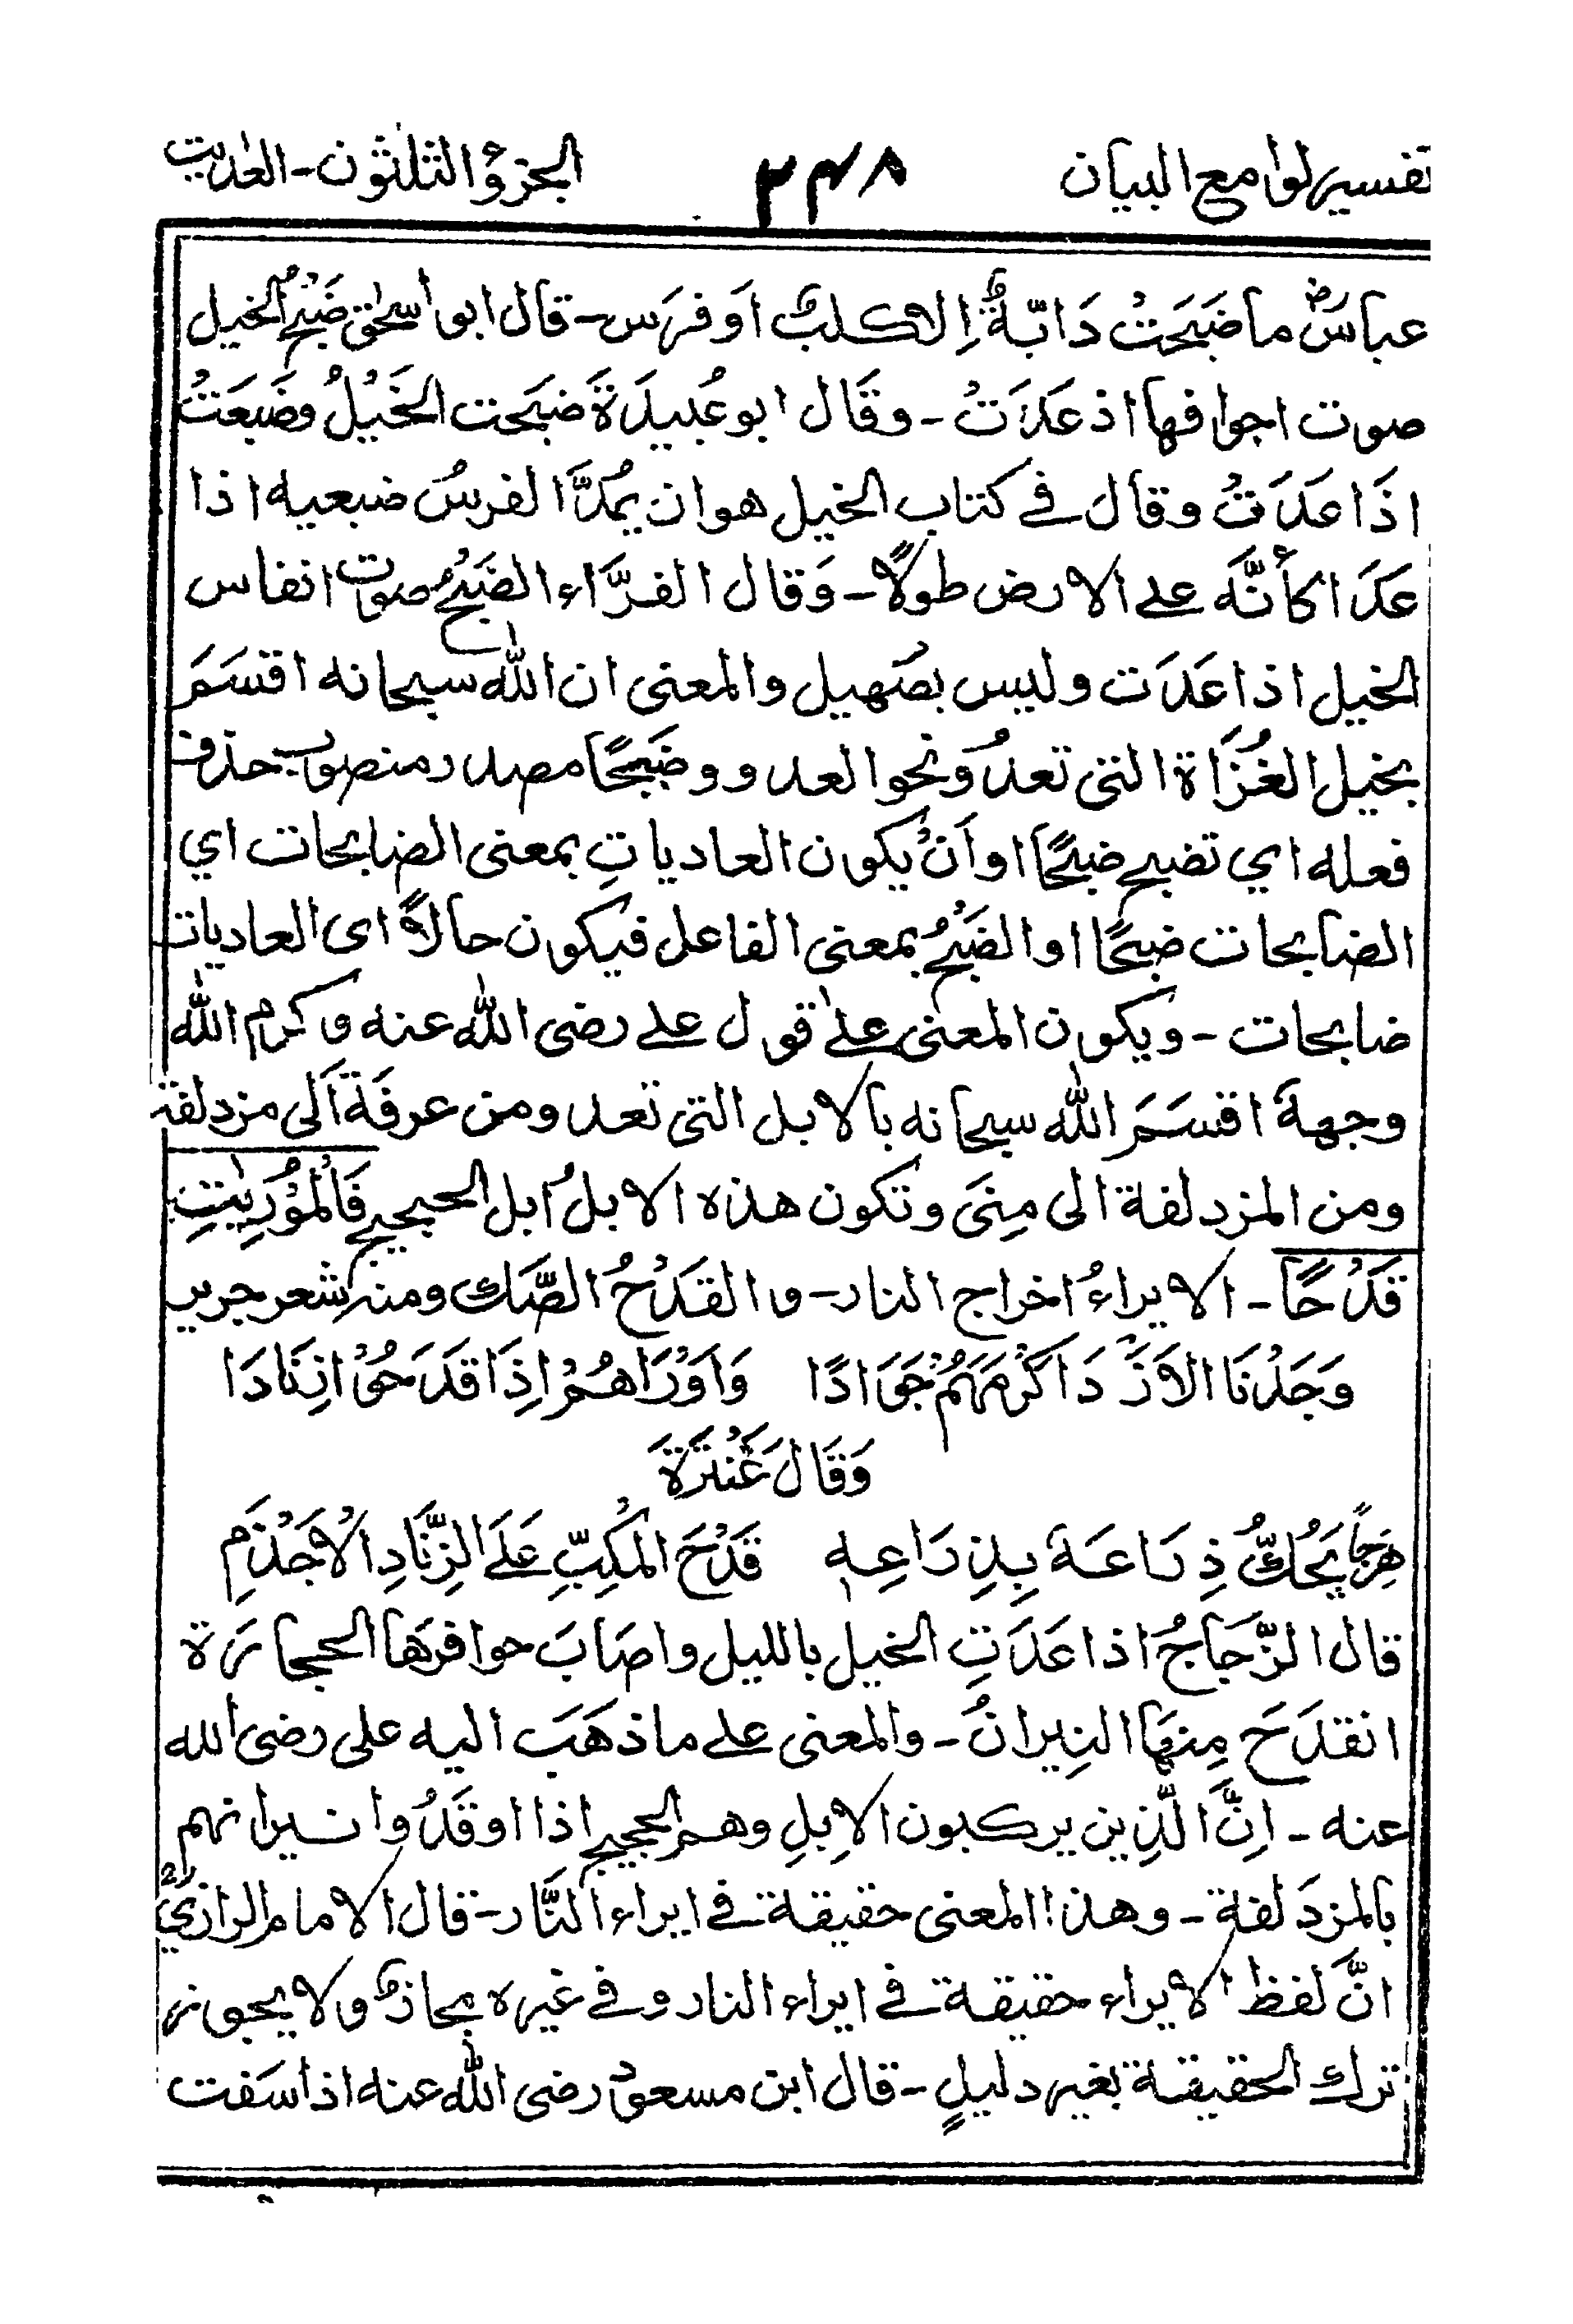 تفسیر لوامع البیان ۳۴۸ الجزؤ الثلٰثون - العٰدیٰت
عباسؓ ما ضَبَحَتْ دَابّةٌ اِلا کلبٌ اَو فرَس - قال ابو اسحٰق ضَبْحُ الخیل
صوت اجوافها اذ عَدَتْ - وقَال ابو عُبیدَةَ ضبَحت الخَیْلُ وضَبعَتْ
اذَا عَدَتْ وقال فی کتاب الخیل هو ان یمُدَّ الفرسُ ضبعیه اذا
عَدَا کأنَّه علی الارض طولًا - وَقال الفرَّاء الضَبْحُ صوت انفاس
الخیل اذا عَدَت ولیس بصَهیل والمعنی ان اللّٰه سبحانه اقسَمَ
بخیل الغُزَاة التی تعدُو نحو العدو وضَبْحًا مصدر منصوب حذف
فعله ای تضبح ضبحًا او اَنْ یکون العادیاتِ بمعنی الضابحات ای
الضابحات ضبحًا او الضَبْحُ بمعنی الفاعل فیکون حالاً ای العادیات
ضابحات - ویکون المعنی علیٰ قول علی رضی اللّٰه عنه وکرم اللّٰه
وجههَ اقسَمَ اللّٰه سبحانه بالابل التی تعدو من عرفَة اَلی مزدلفة
ومن المزدلفة الی مِنیَ وتکون هذه الابلُ ابل الحجیج فَالْمُوْرِیٰتِ
قَدْحًا - الایراءُ اخراج النار - والقَدْحُ الصَّك ومنه شعر جریر
وَجَدْنَا الاَزَْدَ اکْرَمَهُمْ جَوَادًا وَاَوْرَاهُمْ اِذَا قَدَحُوْا زِنَادَا
وَقَالَ عَنْتَرَةَ
هَزِجًا یَحُكُّ ذِرَاعَهَ بِذِرَاعِهٖ قَدْحَ الْمُکِبِّ عَلَی الزِّنَادِ الْاَجْذَمِ
قال الزَّجَاجُ اذا عَدَتِ الخیل باللیل واصَابَ حوافرهَا الحجارَة
انقدَحَ مِنهَا النِیرانُ - والمعنی علی ما ذهَبَ الیه علی رضی الله
عنه - اِنَّ الَّذِین یرکبون الاِبلِ وهم الحجیج اذا اوقَدُوا نیرانهم
بالمزدَلفة - وهذا المعنی حقیقة فی ایراء النَّار - قال الامام الرازیؒ
انَّ لفظ الایراء حقیقة فی ایراء النار وفی غیره مجازٌ ولا یجوز
ترك الحقیقة بغیر دلیلٍ - قال ابن مسعود رضی اللّٰه عنه اذا سَفت